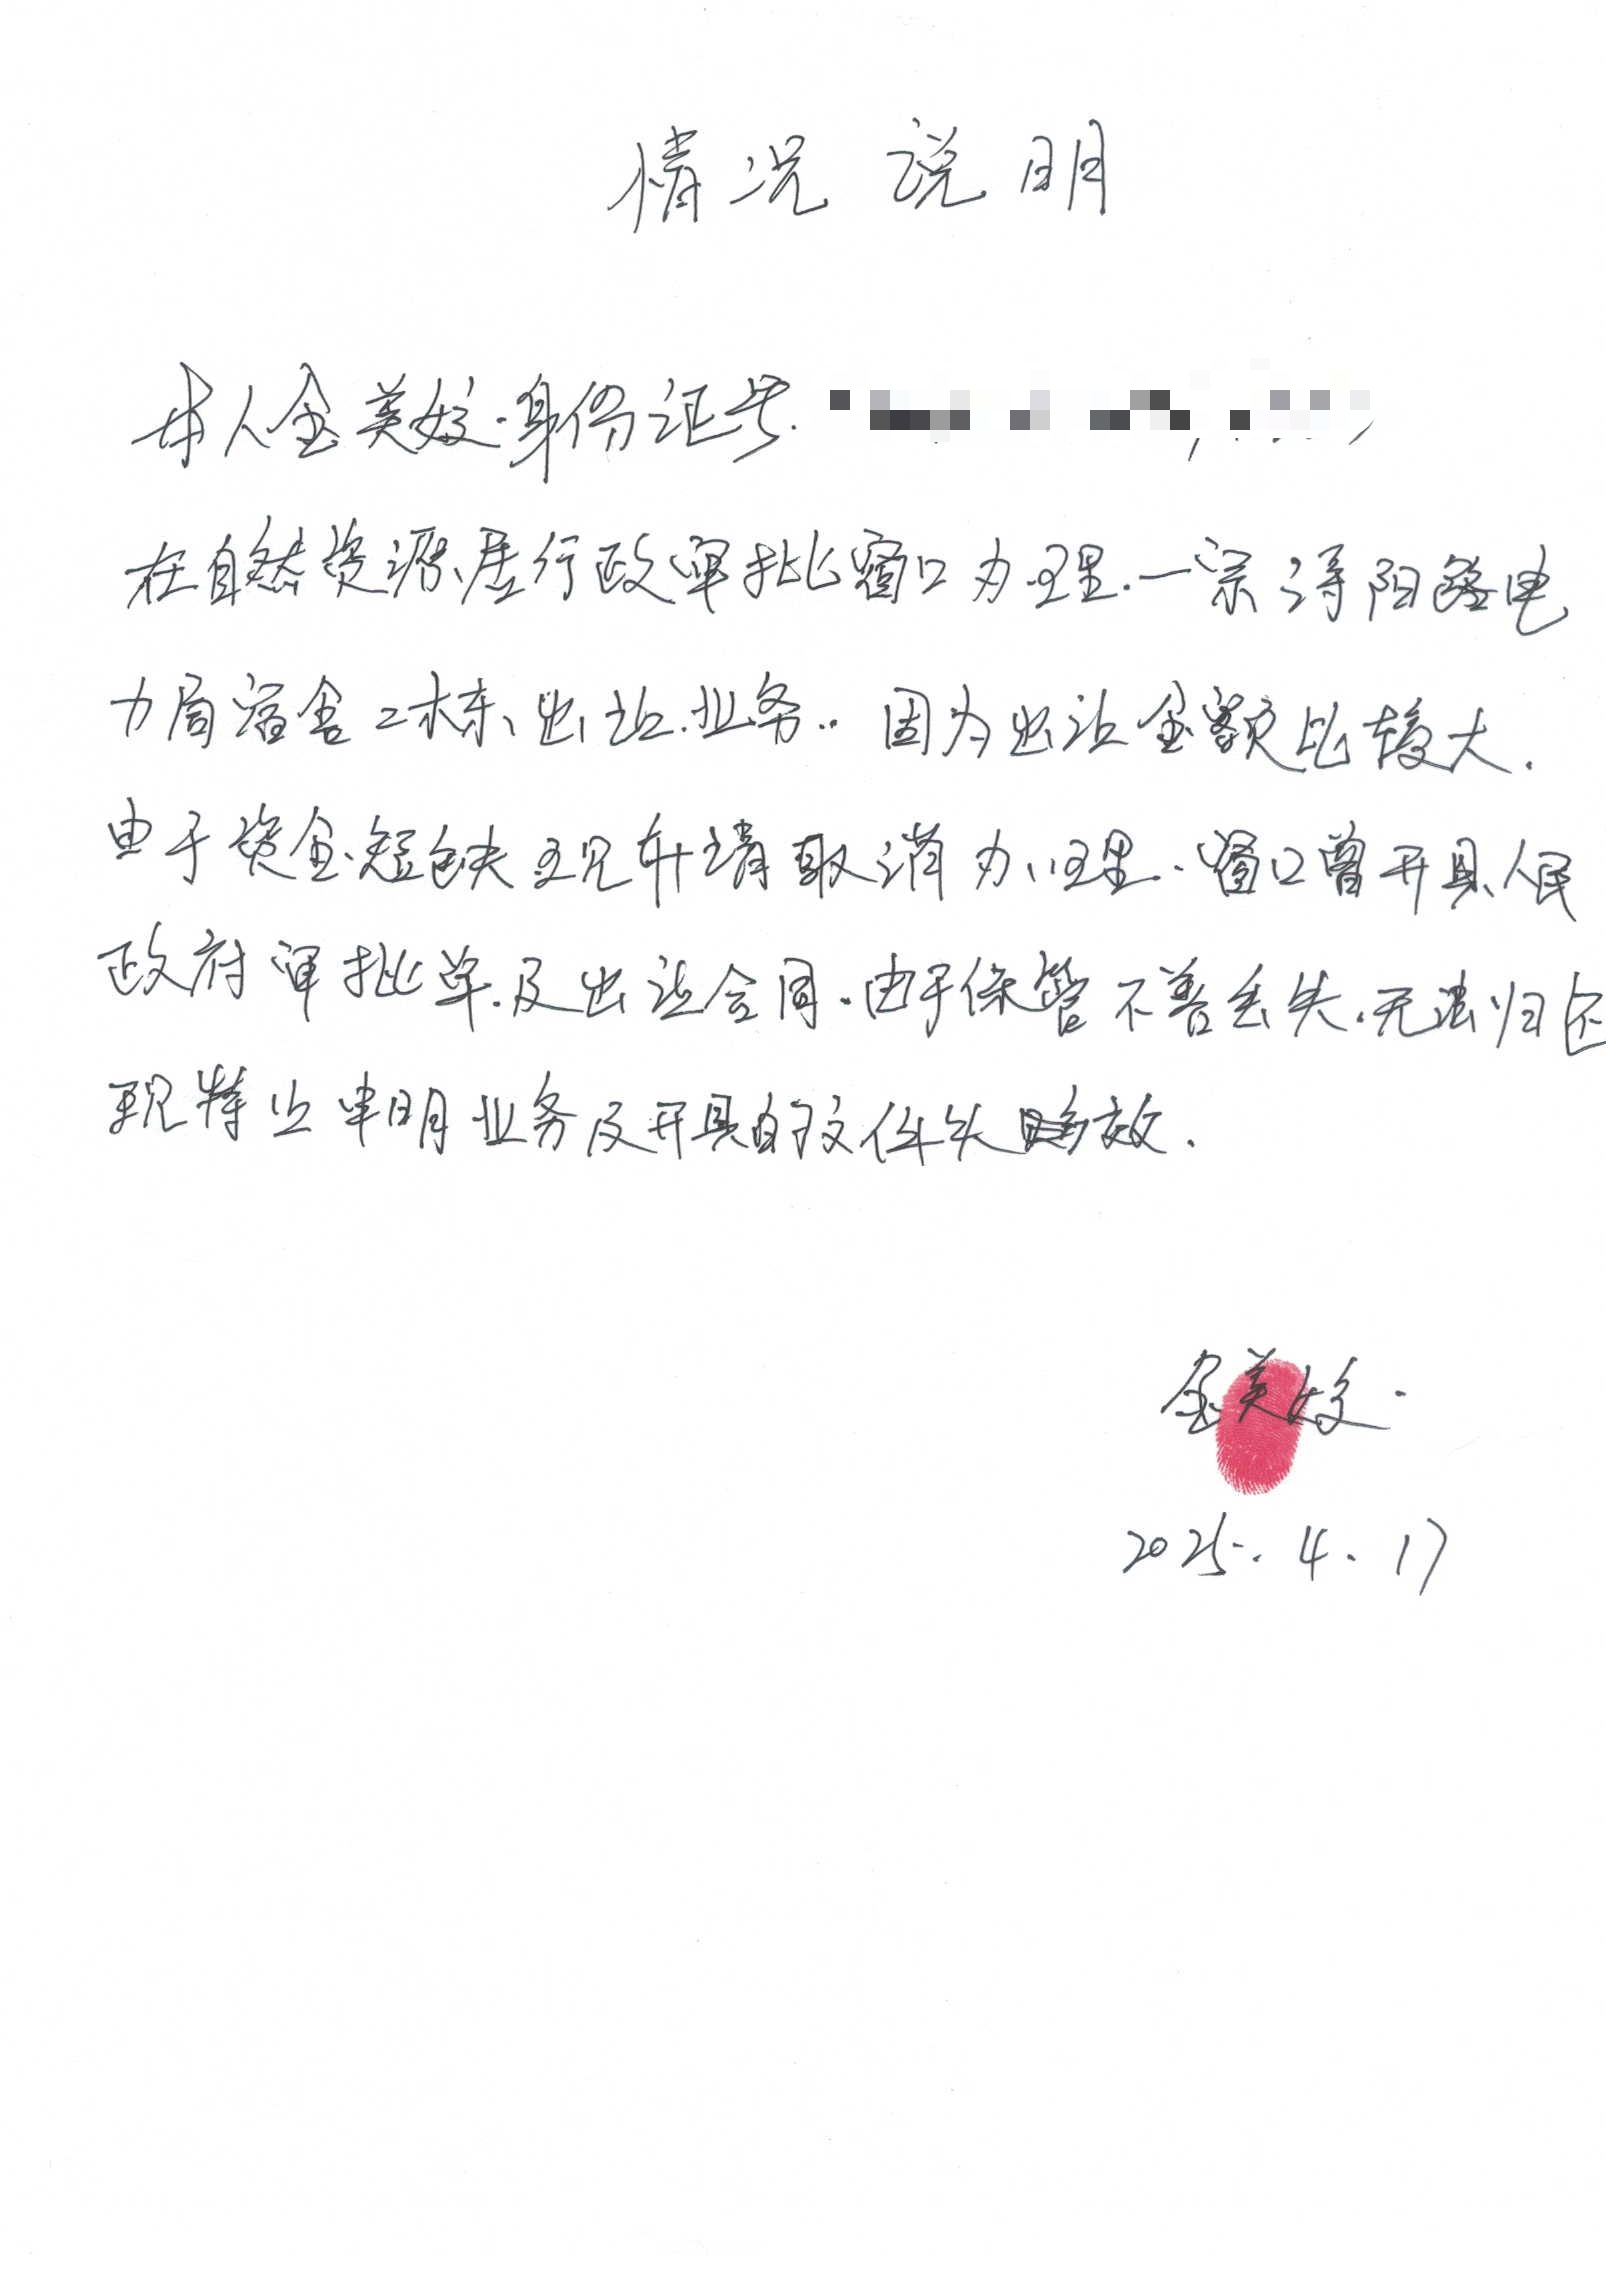 情况说明
本人金美姣.身份证号.
在自然资源局行政审批窗口办理.一宗浔阳路电
力局宿舍二栋、出让.业务.. 因为出让金额比较大.
由于资金短缺现申请取消办理.窗口曾开具人民
政府审批单.及出让合同.由于保管不善丢失.无法归还
现特此申明业务及开具的文件失效.
金美姣.
2025.4.17